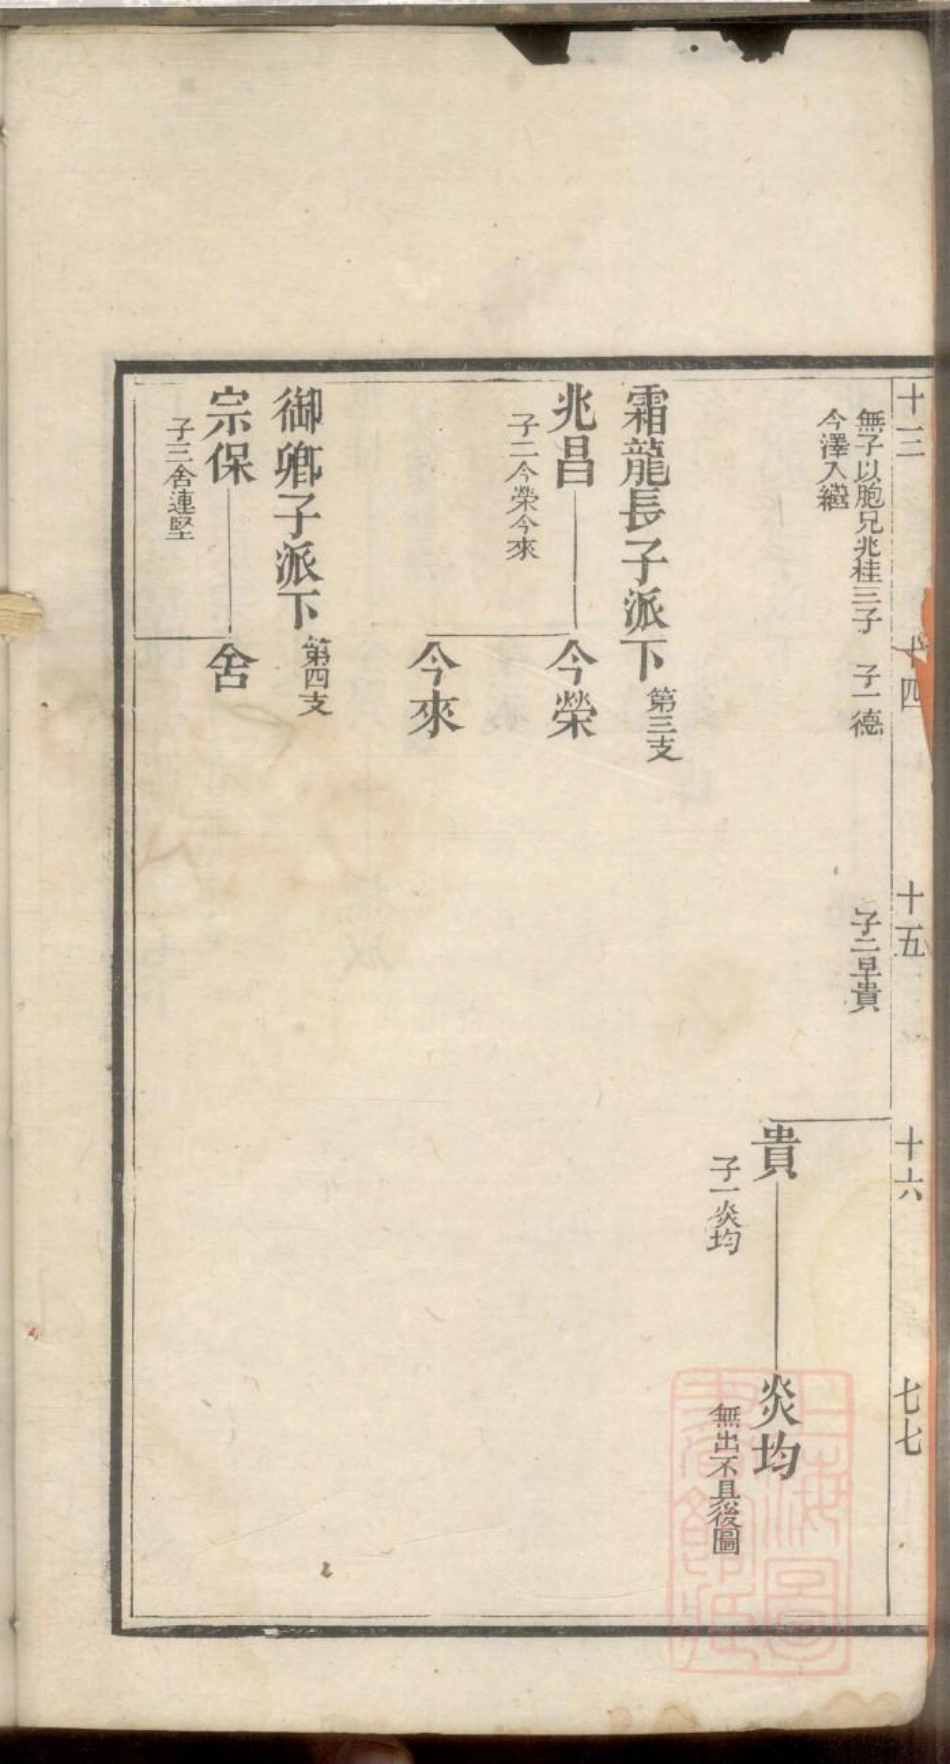 十三
十四
十五
十六
七七
無子以胞兄兆桂三子
今澤入繼
子一德
子二早貴
貴
子一炎均
炎均
無出不具後圖
霜龍長子派下
第三支
兆昌
子二今榮今來
今榮
今來
御卿子派下
第四支
宗保
子三舍連堅
舍
上海圖書館藏